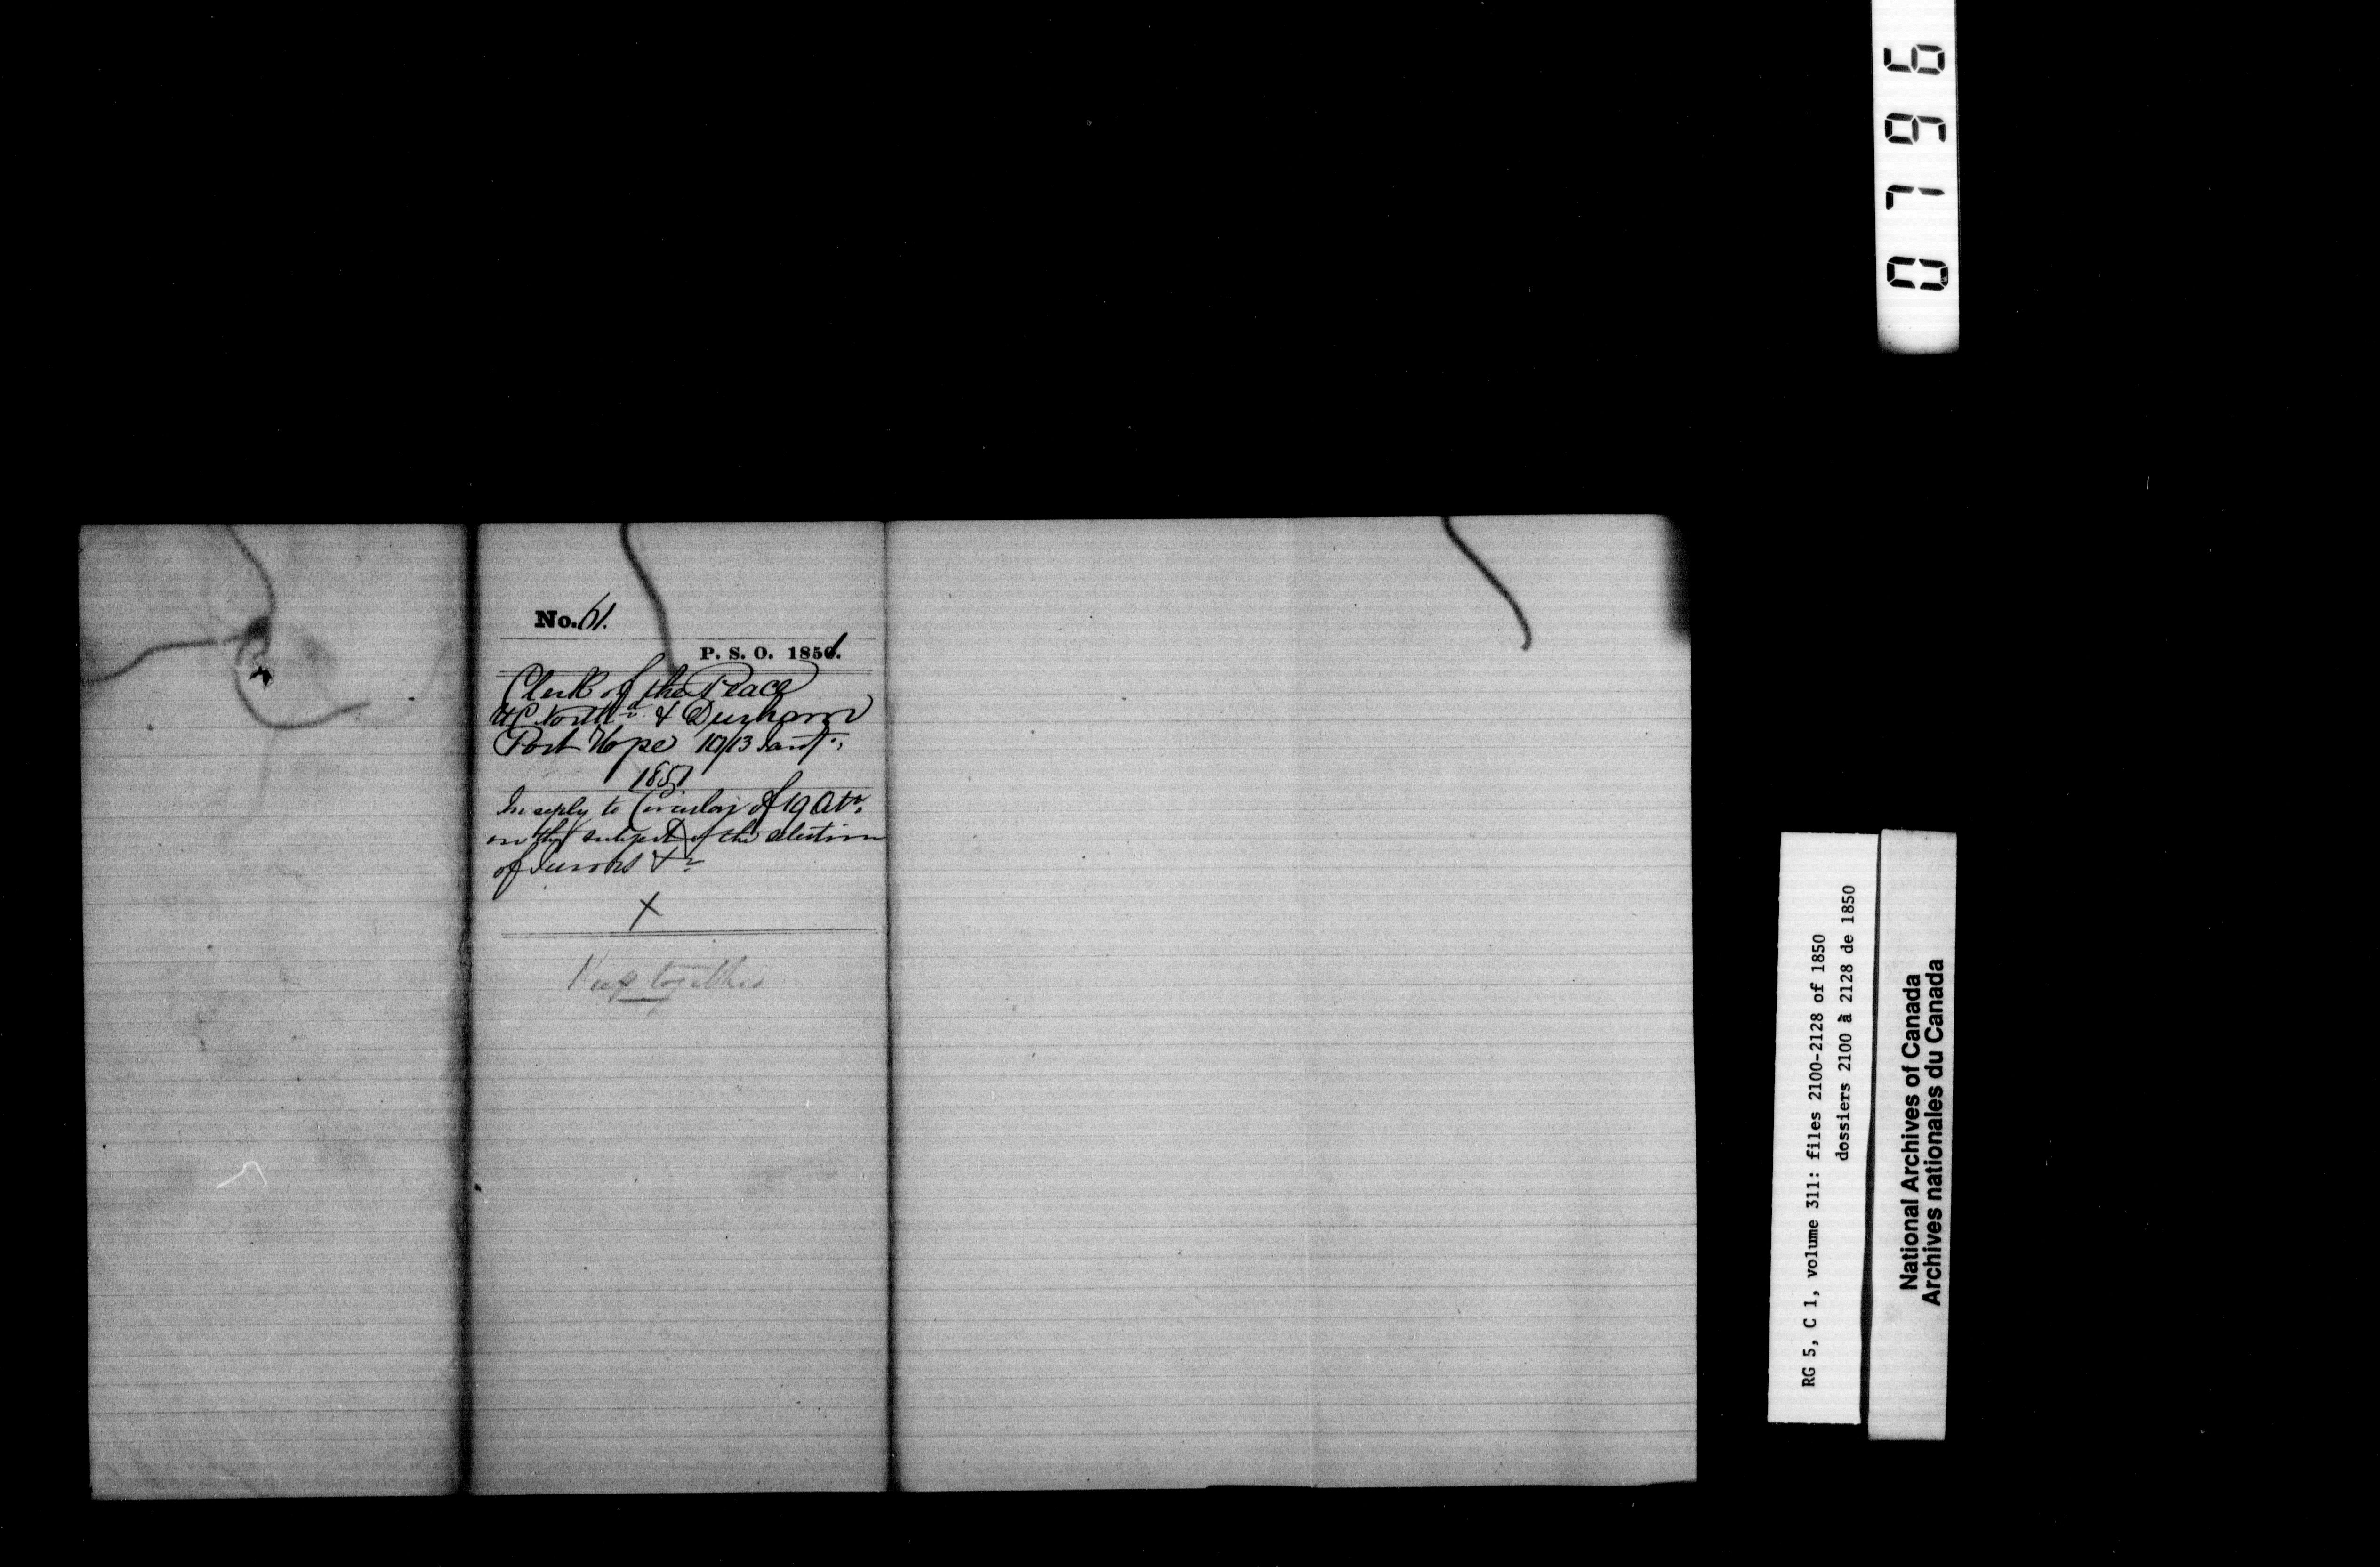 No. 61.
P. S. O. 1851.
Clerk of the Peace
UC North.d & Durham
Port Hope 10/13 Jany.
1851
In reply to Circular of 19 Ult.
on the subject of the selection
of Jurors &c
X
Keep together
0796
RG 5, C 1, volume 311: files 2100-2128 of 1850
dossiers 2100 à 2128 de 1850
National Archives of Canada
Archives nationales du Canada